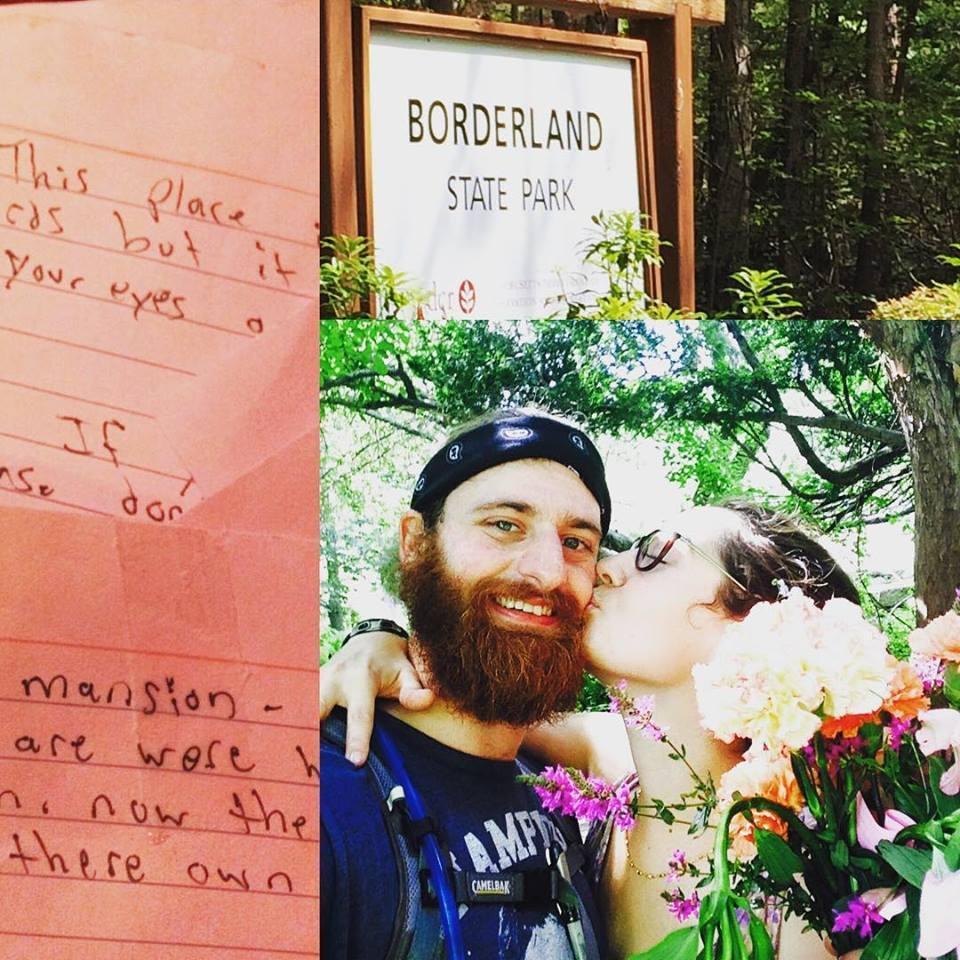 This place
cds but it
your eyes
If
don
mansion -
are were
now the
there own
BORDERLAND
STATE PARK
dcr
CAMP
CAMELBAK